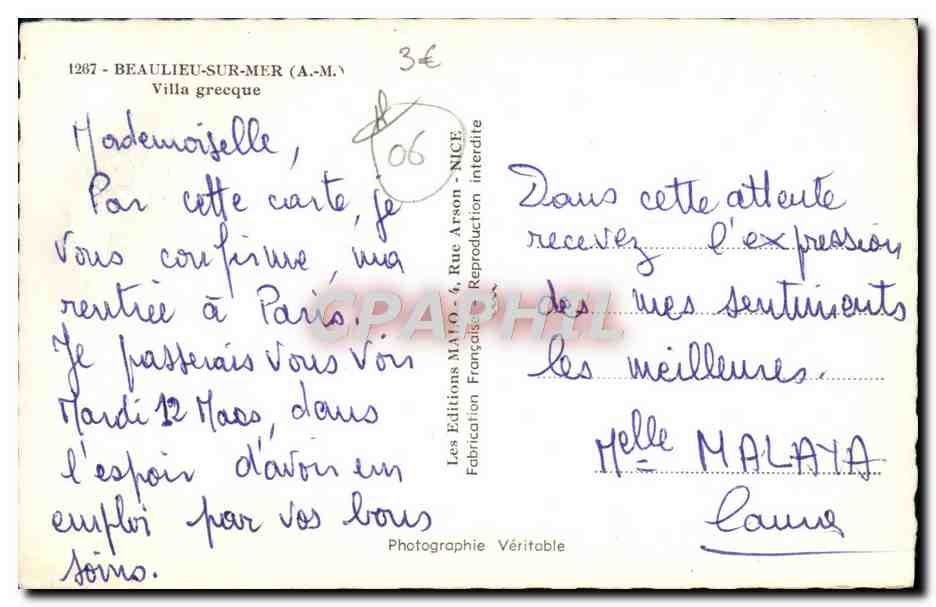 1267 - BEAULIEU-SUR-MER (A.-M.)
Villa grecque
3€
06
Mademoiselle,
Par cette carte, je
vous confirme, ma
rentrée à Paris.
Je passerais vous voir
Mardi 12 Mars, dans
l'espoir d'avoir un
emploi par vos bons
soins.
Les Editions MALO - 4, Rue Arson - NICE
Fabrication Française - Reproduction interdite
Dans cette attente
recevez l'expression
des mes sentiments
les meilleures.
Melle MALAYA
Laura
Photographie Véritable
CPAPHIL